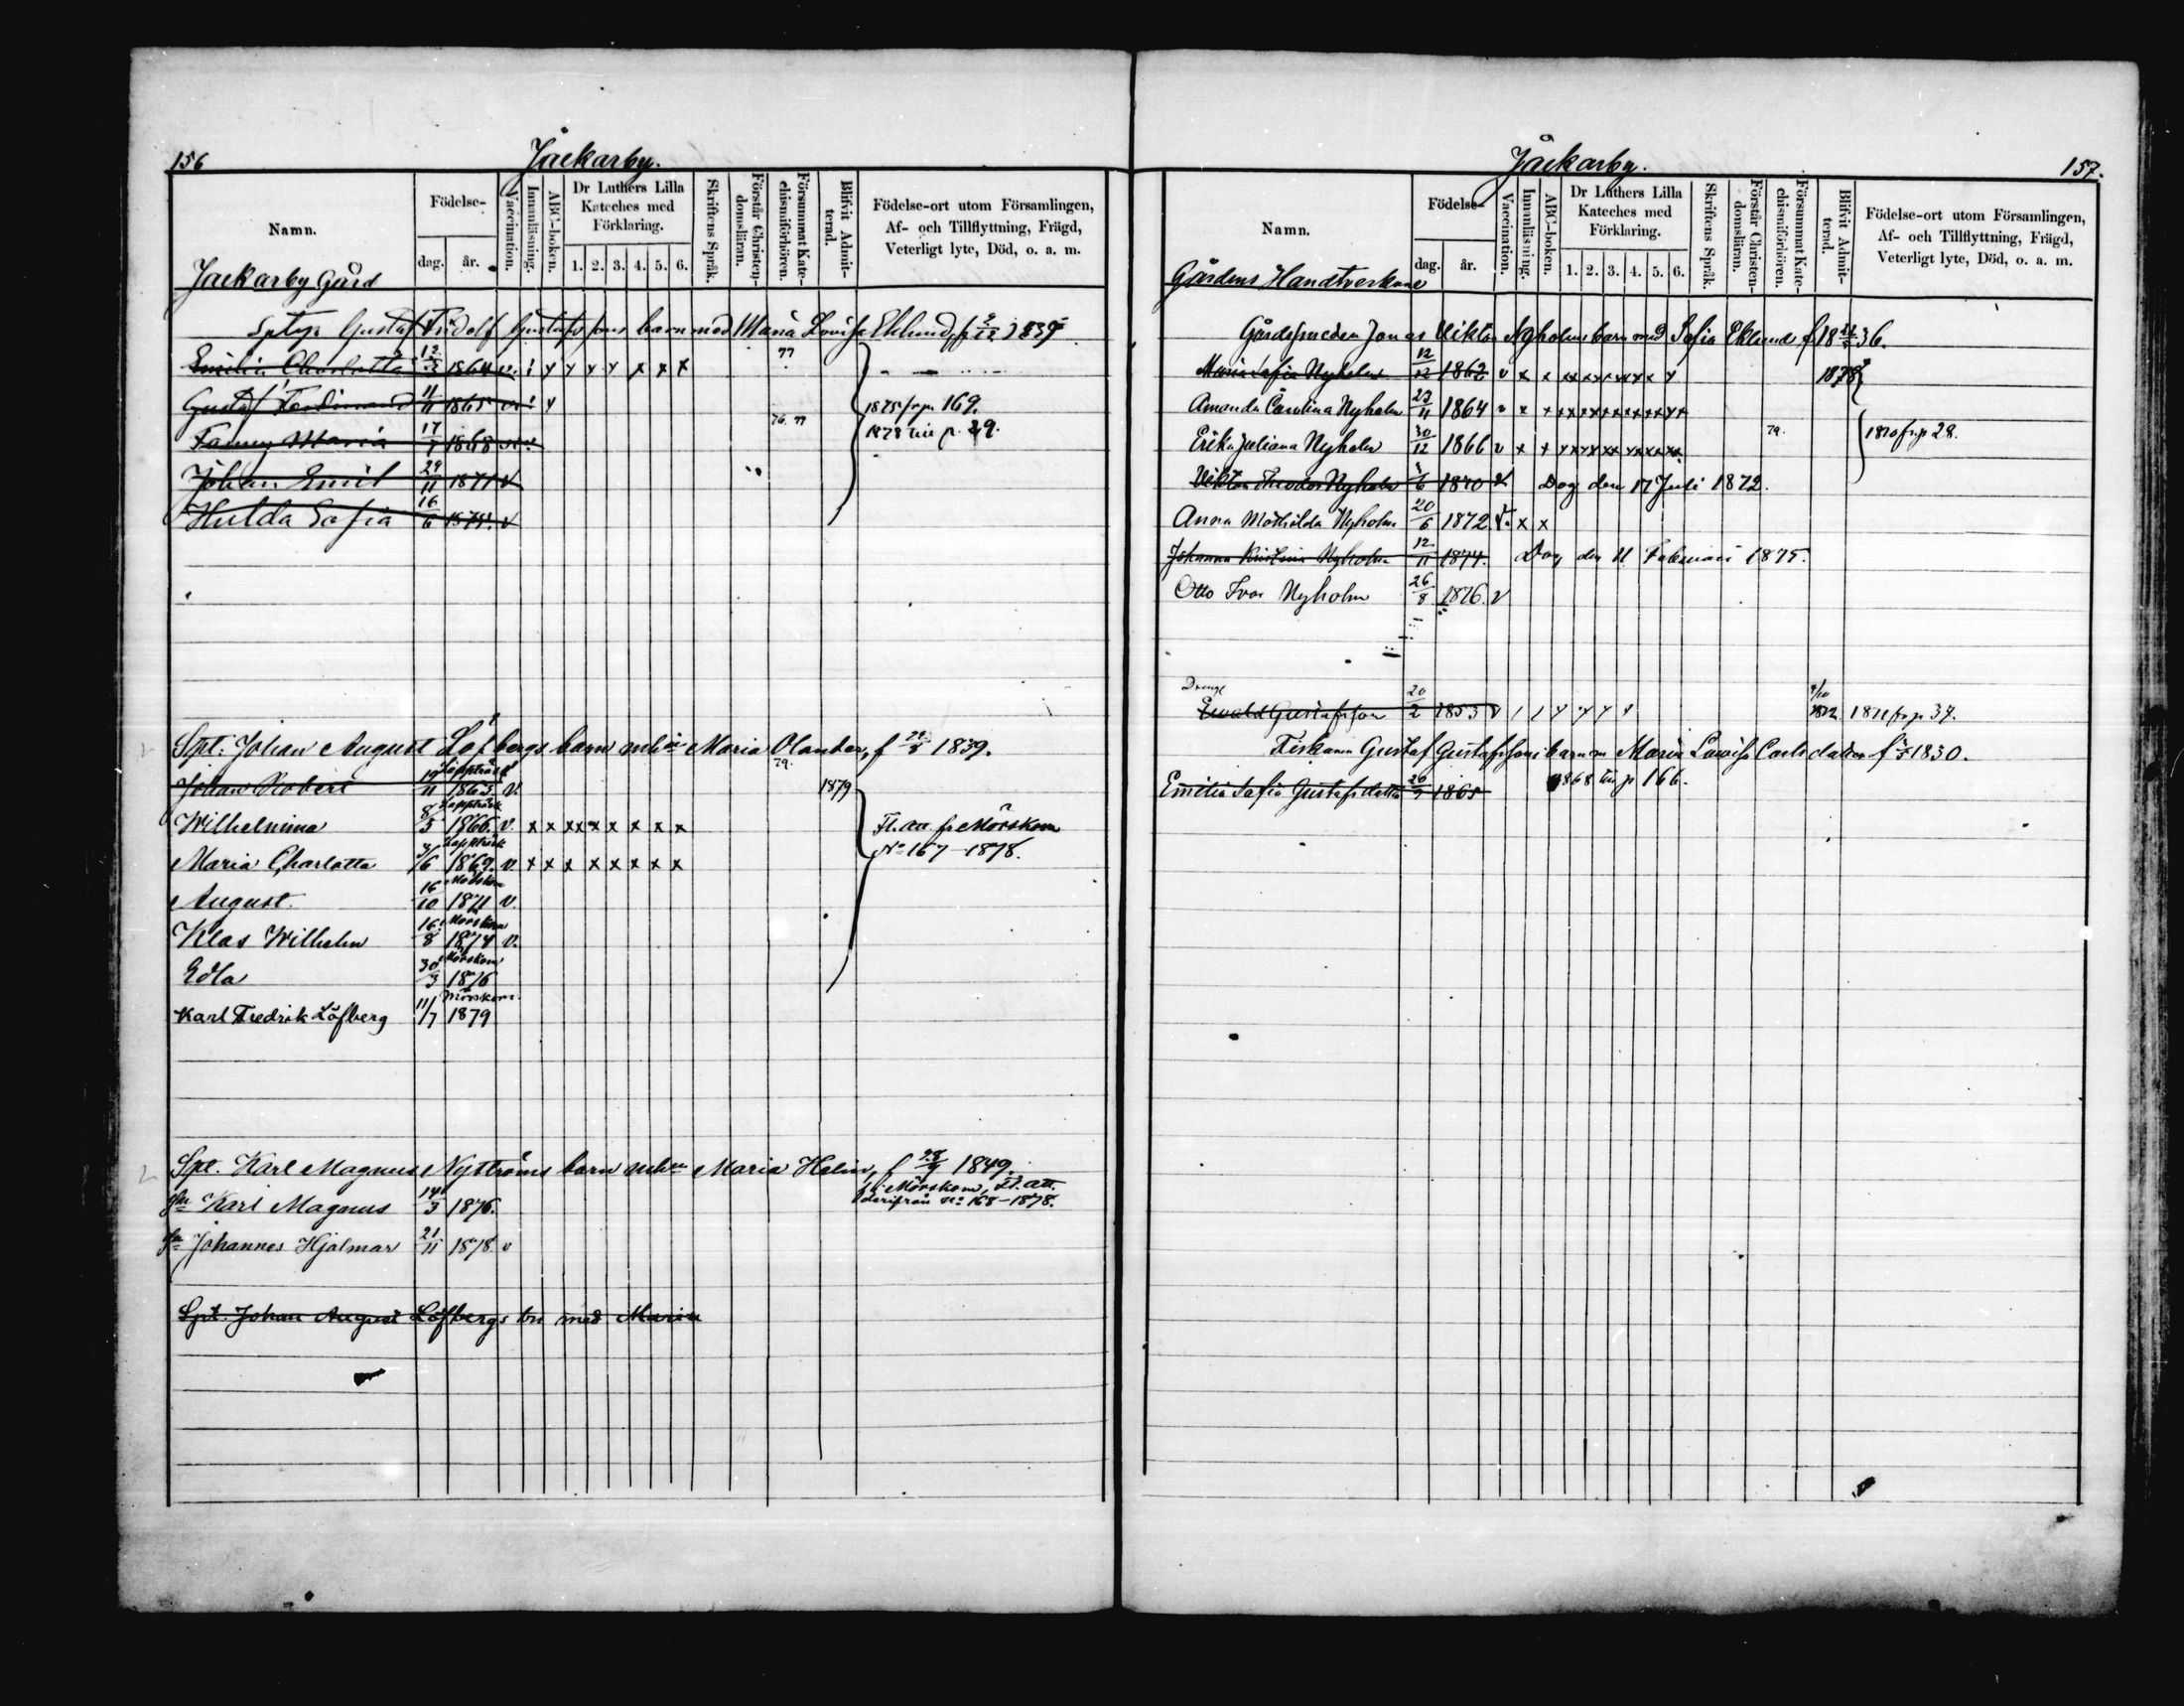 156
Jackarby.
Namn.
Födelse-
dag.
år.
Vaccination.
Innanläsning.
ABC-boken.
Dr Luthers Lilla Kateches med Förklaring.
1. 2. 3. 4. 5. 6.
Skriftens Språk.
Förstår Christendomsläran.
Försummat Katechismiförhören.
Blifvit Admitterad.
Födelse-ort utom Församlingen,
Af- och Tillflyttning, Frägd,
Veterligt lyte, Död, o. a. m.
Jackarby Gård
Gustaf Fridolf Gustafssons barn med Maria Lovisa Eklund, f.
Emilia Charlotta 12/3 1864 v. 77
Gustaf Ferdinand 11/11 1865 v. 1875 fr p. 169.
Fanny Maria 17/7 1868 v. 76. 77 1878 till p. 29.
Johan Emil 29/11 1871 v
Hulda Sofia 16/6 1874. v
Spt. Johan August Löfbergs barn m h:u Maria Olander, f 22/5 1839.
79.
Johan Robert 19/11 Lappträsk 1863 v. 1879
Wilhelmina 8/5 Lappträsk 1866. v. x x x x x x x x x Fl. att. fr Mörskom
Maria Charlotta 3/6 Lappträsk 1869. v. x x x x x x x x No 167 - 1878.
August. 16/10 Mörskom 1871 v.
Klas Wilhelm 16/8 Mörskom 1874 v.
Edla 30/3 Mörskom 1876
Karl Fredrik Löfberg 11/7 Mörskom 1879
Spt. Karl Magnus Nyströms barn m h:u Maria Helin, f 28/9 1849.
Karl Magnus 14/3 1876. f. i Mörskom, Fl. att.
derifrån No 168 - 1878.
Johannes Hjalmar 21/11 1878 v
Spt. Johan August Löfbergs bn med Maria
157.
Jackarby.
Namn.
Födelse-
dag.
år.
Vaccination.
Innanläsning.
ABC-boken.
Dr Luthers Lilla Kateches med Förklaring.
1. 2. 3. 4. 5. 6.
Skriftens Språk.
Förstår Christendomsläran.
Försummat Katechismiförhören.
Blifvit Admitterad.
Födelse-ort utom Församlingen,
Af- och Tillflyttning, Frägd,
Veterligt lyte, Död, o. a. m.
Gårdens Handtverkare
Gårdssmeden Jonas Viktor Nyholms barn med Sofia Eklund f. 1836.
Maria Sofia Nyholm 12/12 1862 v 1878
Amanda Carolina Nyholm 23/11 1864 v
Erika Juliana Nyholm 30/12 1866 v 79. 1870 fr. p 28.
Viktor Theodor Nyholm 1870 v Dog den 17 Juli 1872.
Anna Mathilda Nyholm 20/6 1872. v. x x
Johanna Kristina Nyholm 12/11 1874. Dog den 11 Februari 1875.
Otto Ivar Nyholm 26/8 1876. v
Drenge
Ewald Gustafsson 20/2 1853 v 1872 1871 fr p 37.
Fiskaren Gustaf Gustafssons barn m Maria Lovisa Carlsdotter f 1830.
Emilia Sofia Gustafsdotter 1865 1868 till p 166.